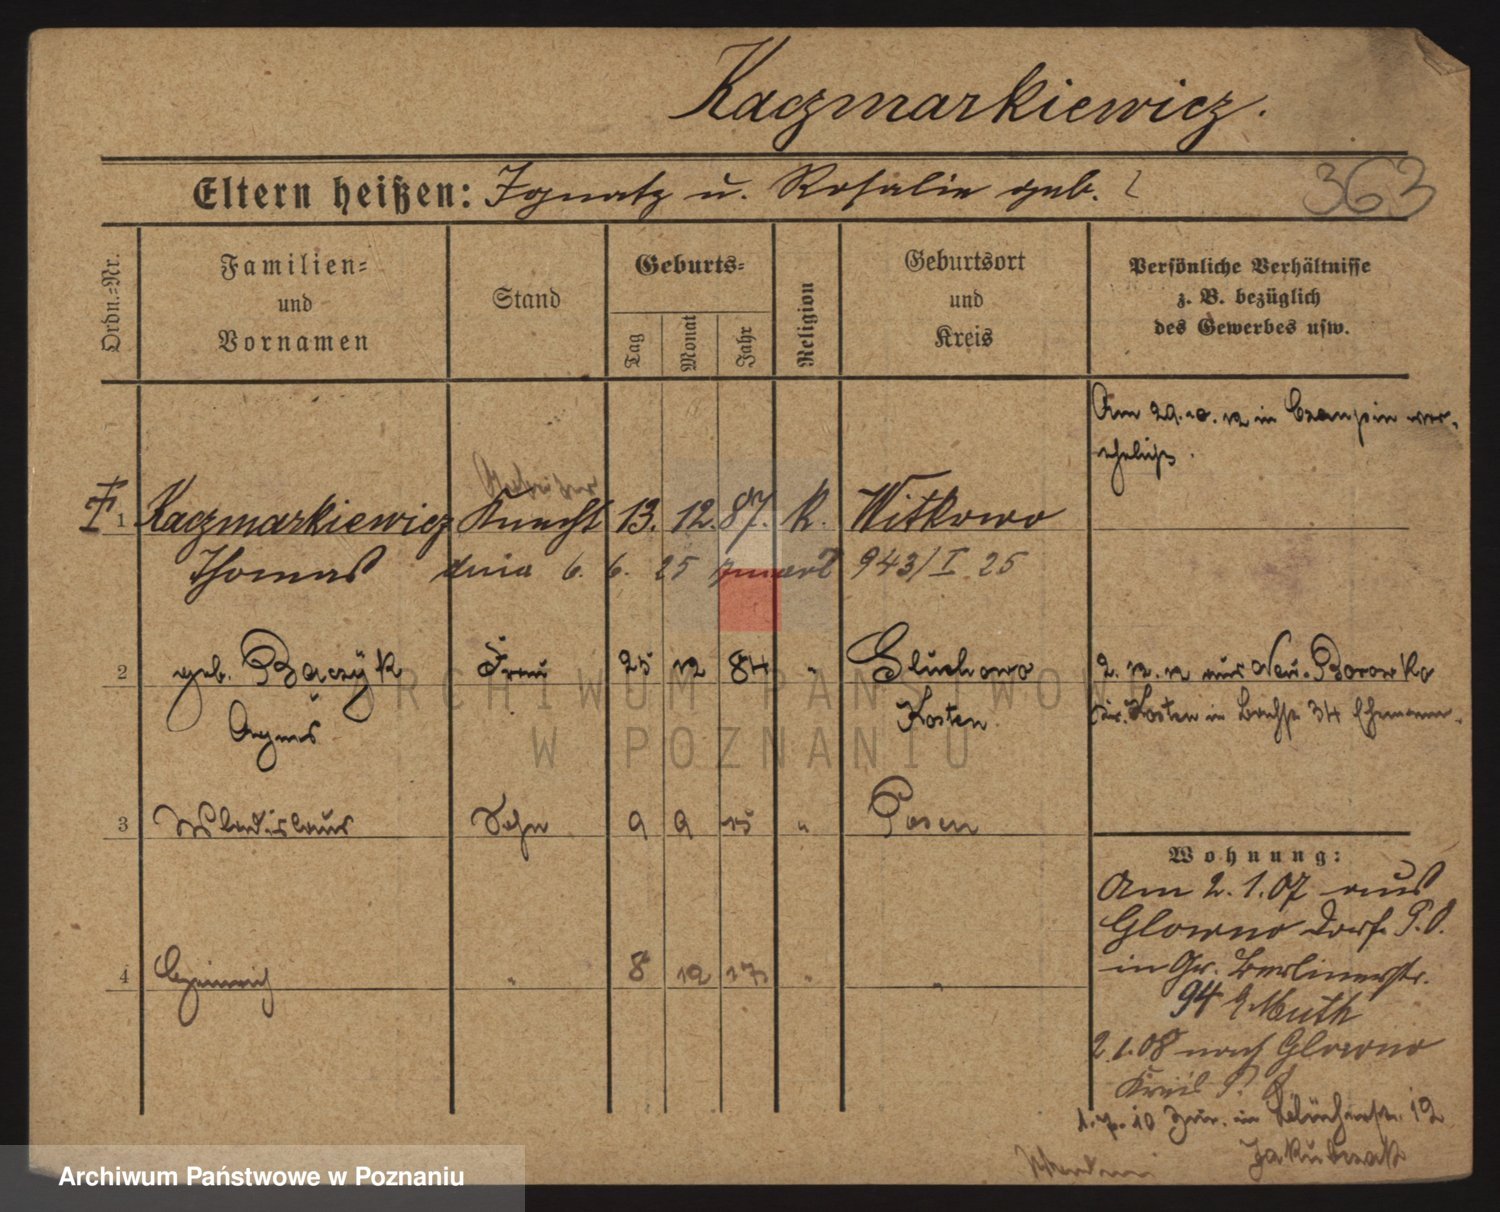 Kaczmarkiewicz.
Eltern heißen: Ignatz u. Rosalie geb. ?
363
Ordn.-Nr.
Familien- und Vornamen
Stand
Geburts-
Tag
Monat
Jahr
Religion
Geburtsort und Kreis
Persönliche Verhältnisse z. B. bezüglich des Gewerbes usw.
Am 29. 10. 12 in Czempin ver-
ehelicht.
Arbeiter
1 Kaczmarkiewicz Knecht 13. 12. 87. k. Witkowo
Thomas dnia 6. 6. 25 zmarł 943/I 25
2 geb. Bączyk Frau 25 12 84 " Gluchowo
Kosten
Agnes
2. 12. 12 aus Neu-Borowko
Kr. Kosten in 34 Ehemann.
3 Wladislaus Sohn 9 9 15 " Posen
4 Heinrich " 8 12 17 " "
Wohnung:
Am 2. 1. 07 aus
Glowno Dorf P. O.
in Gr. Berlinerstr.
94 b Muth
2. 1. 08 nach Glowno
Kreis P. O.
1. 7. 10 zur. in 12
Jakubczak
ARCHIWUM PAŃSTWOWE
W POZNANIU
Archiwum Państwowe w Poznaniu